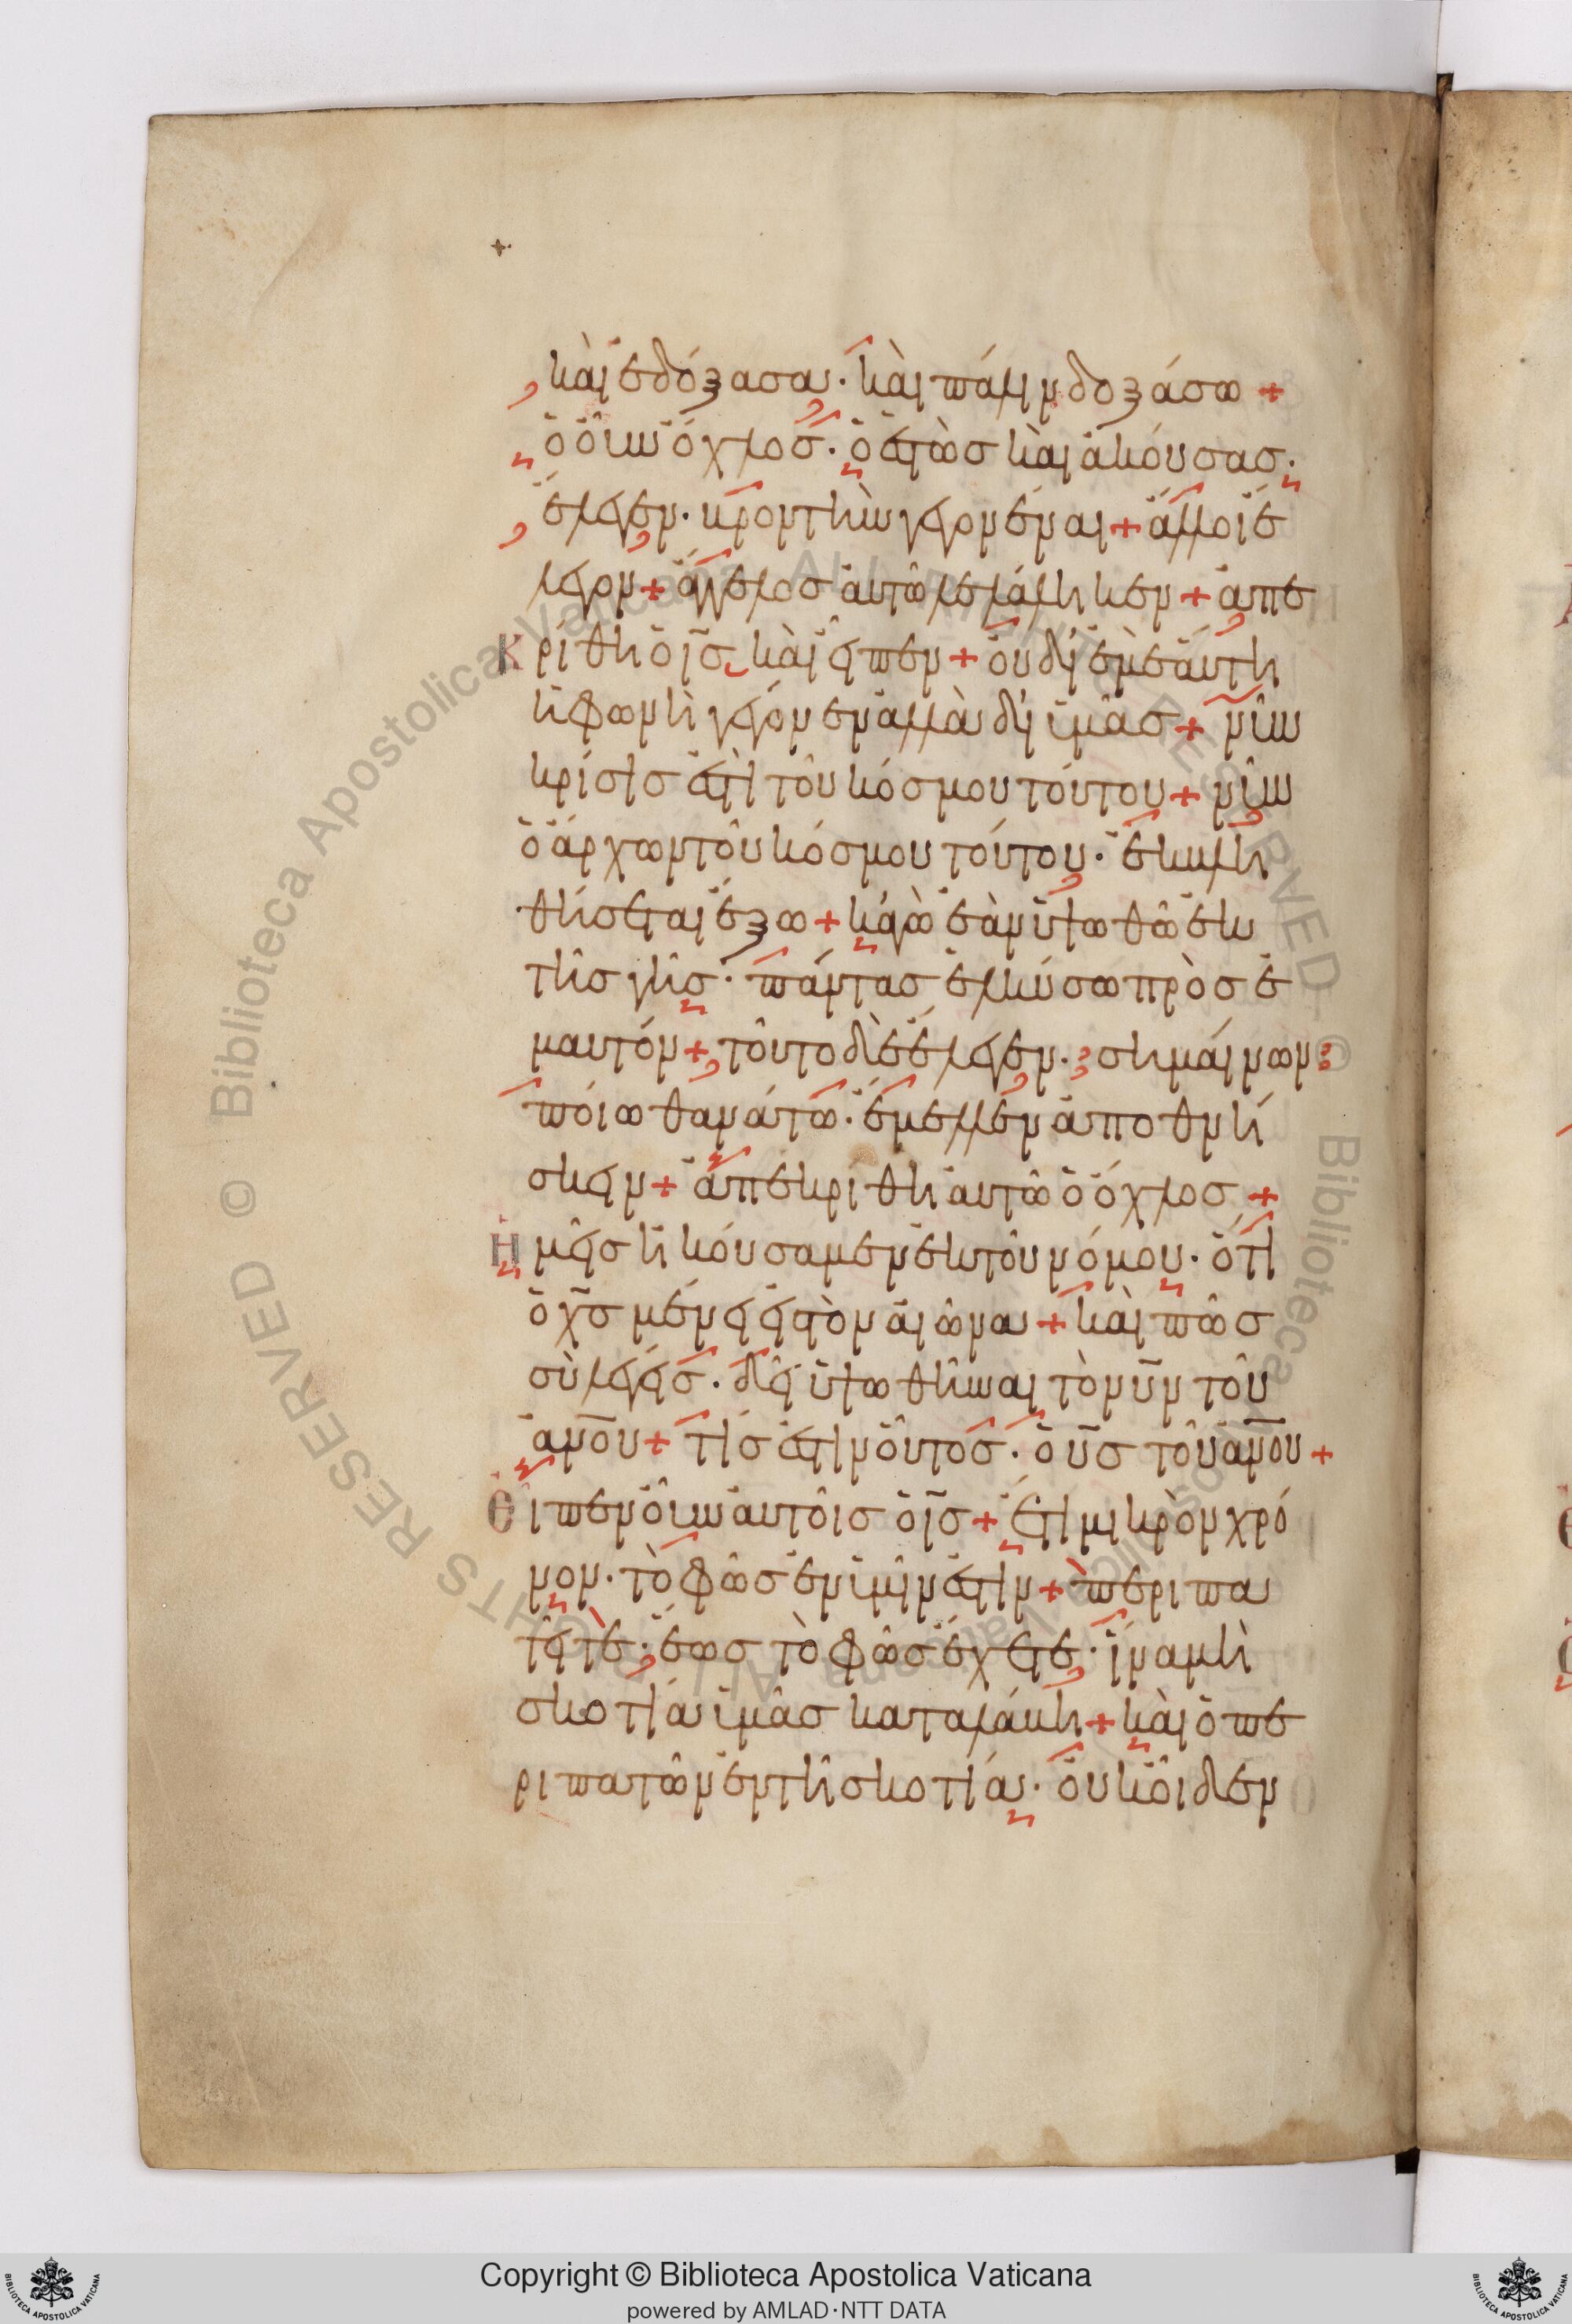 καὶ ἐδόξασα· καὶ πάλιν δοξάσω +
ὁ οὖν ὄχλος· ὁ ἑστὼς καὶ ἀκούσας·
ἔλεγεν· βροντὴν γεγονέναι + ἄλλοι ἔ
λεγον + ἄγγελος αὐτῶ λελάληκεν + ἀπε
κρίθη ὁ ις καὶ εἶπεν + οὐ δι' ἐμὲ αὕτη
ἡ φωνὴ γέγονεν ἀλλὰ δι' ὑμᾶς + νῦν
κρίσις ἐστὶ τοῦ κόσμου τούτου + νῦν
ὁ ἄρχων τοῦ κόσμου τούτου· ἐκβλη
θήσεται ἔξω + κἀγὼ ἐὰν ὑψωθῶ ἐκ
τῆς γῆς· πάντας ἑλκύσω πρὸς ἐ
μαυτόν + τοῦτο δὲ ἔλεγεν· σημαίνων
ποίω θανάτω· ἔμελλεν ἀποθνή
σκειν + ἀπεκρίθη αὐτῶ ὁ ὄχλος +
Ἡμεῖς ἠκούσαμεν ἐκ τοῦ νόμου· ὅτι
ὁ χς μένει εἰς τὸν αἰῶνα + καὶ πῶς
σὺ λέγεις· δεῖ ὑψωθῆναι τὸν υν τοῦ
ανου + τίς ἐστιν οὗτος· ὁ υς τοῦ ανου +
Εἶπεν οὖν αὐτοῖς ὁ ις + ἔτι μικρὸν χρό
νον· τὸ φῶς ἐν ὑμῖν ἐστιν + περιπα
τεῖτε· ἕως τὸ φῶς ἔχετε· ἵνα μὴ
σκοτία ὑμᾶς καταλάβη + καὶ ὁ πε
ριπατῶν ἐν τῆ σκοτία· οὐκ οἶδεν
Copyright © Biblioteca Apostolica Vaticana
powered by AMLAD·NTT DATA